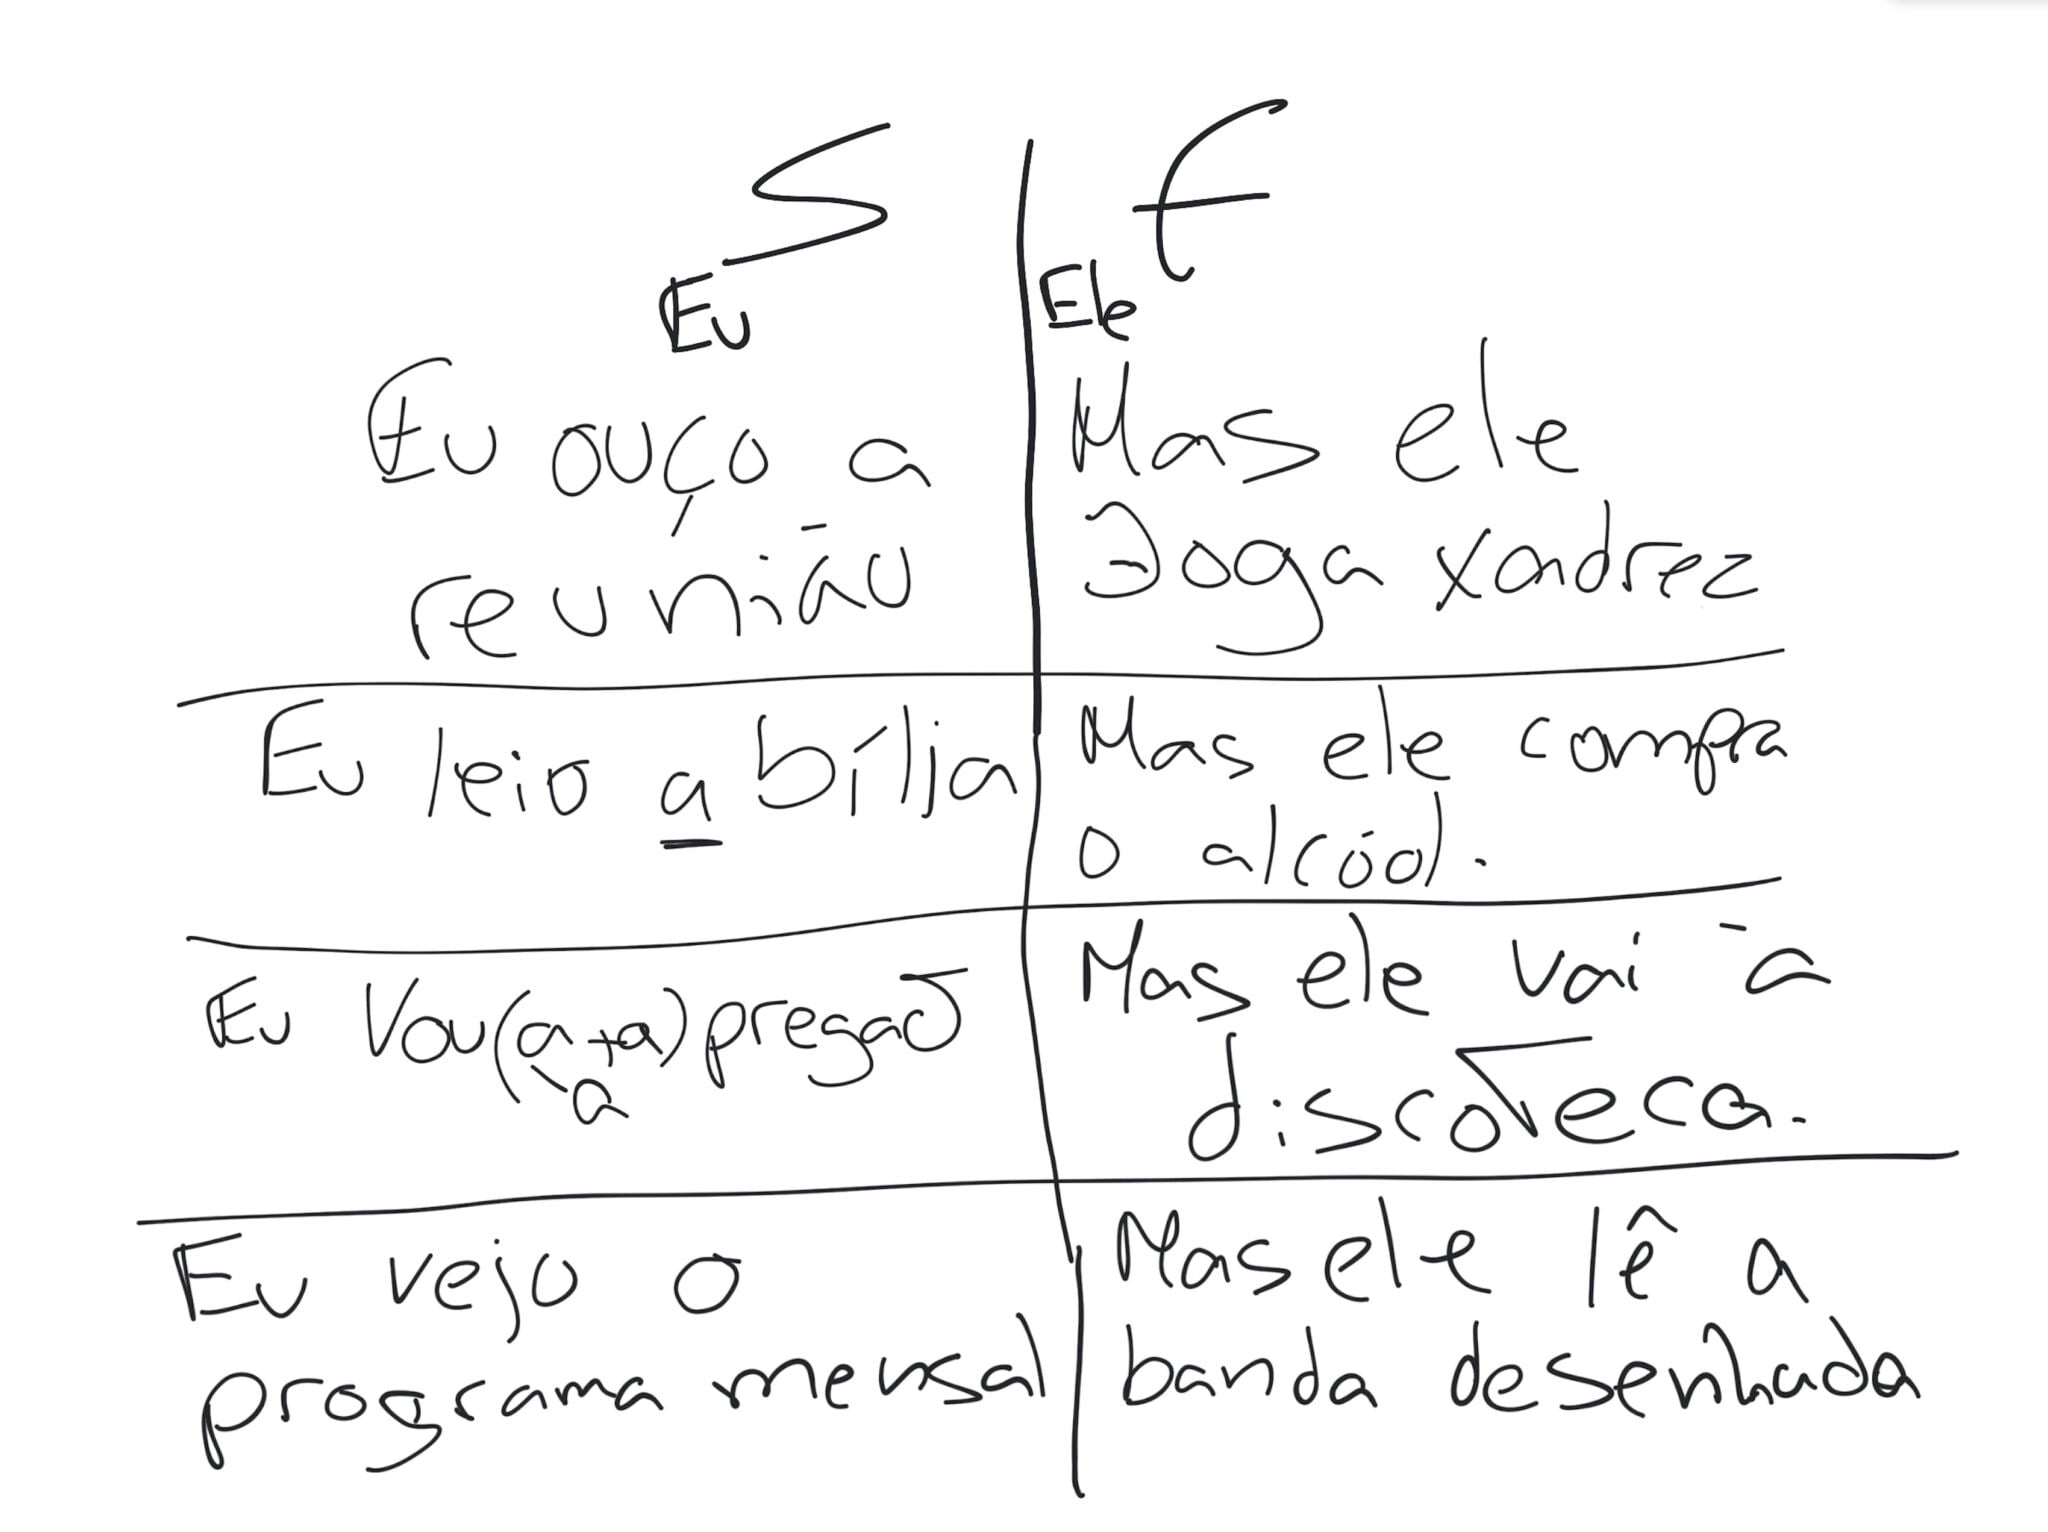 S
Eu
Eu ouço a
reunião
Eu leio a bílja
Eu Vou (a+a) pregaō
à
Eu vejo o
programa mensal
f
Ele
Mas ele
Joga xadrez
Mas ele compra
o alcóol.
Mas ele vai à
discoteca.
Mas ele lê a
banda desenhada